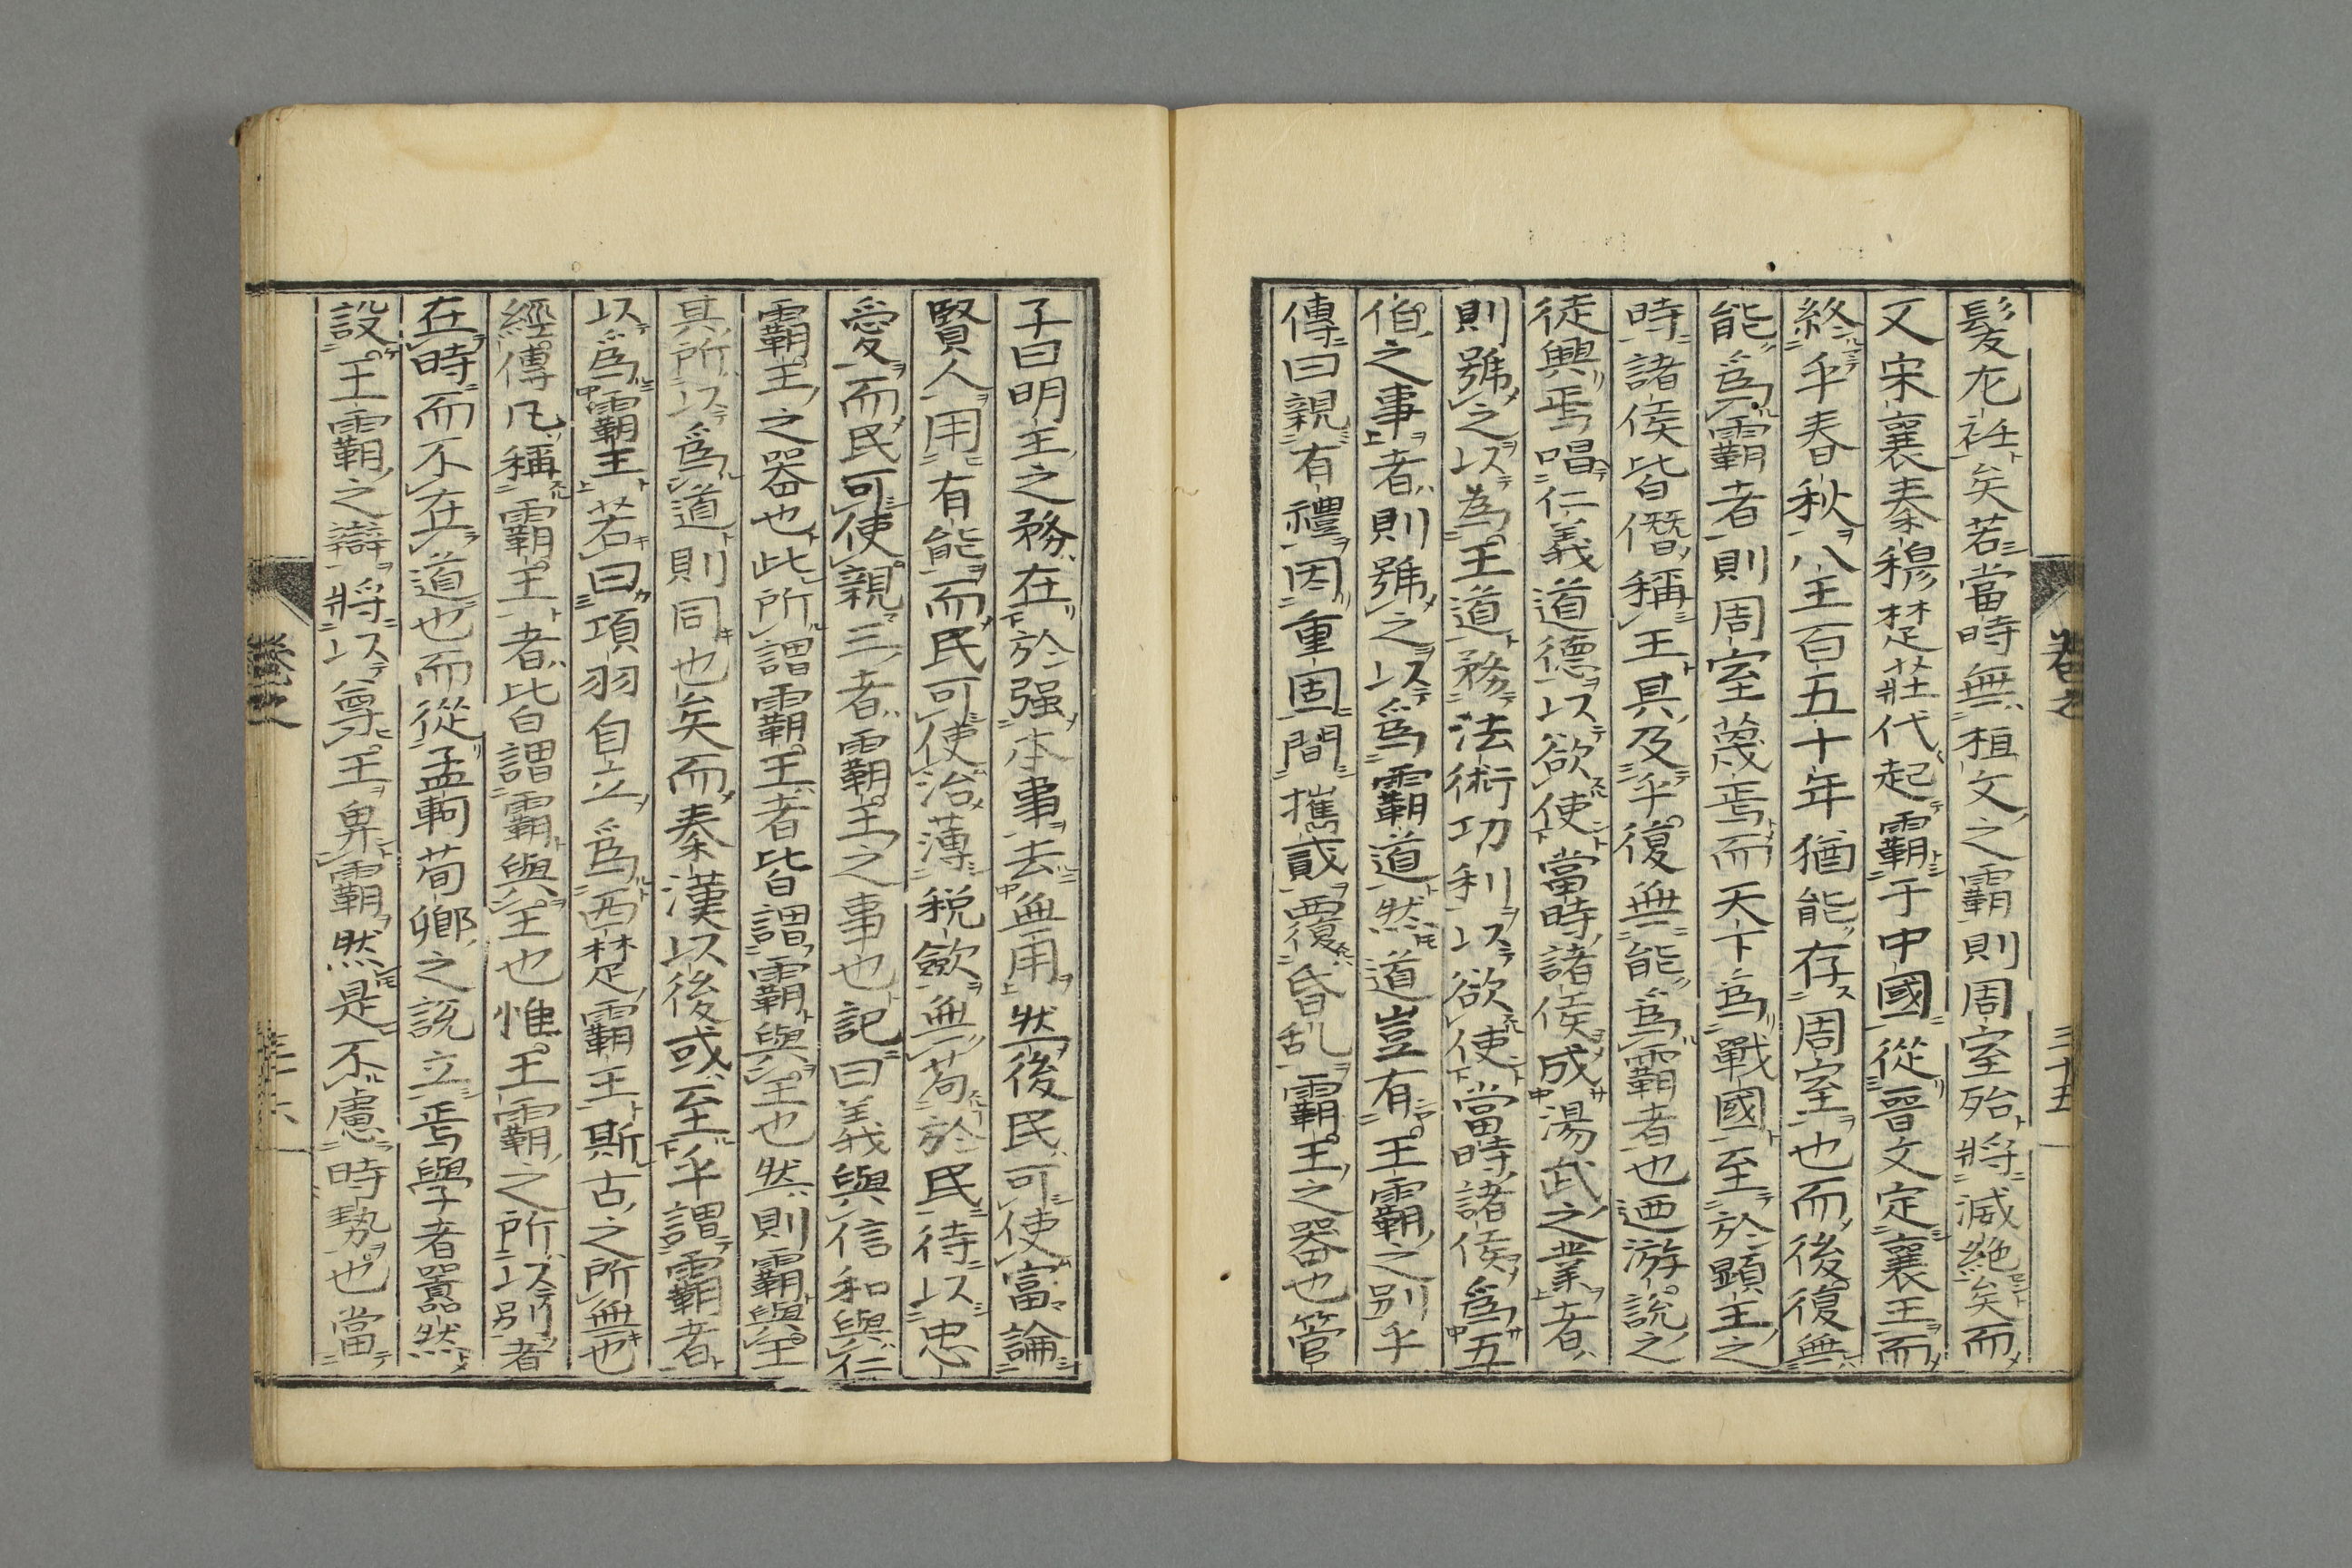 髪左衽矣若當時無植文之霸則周室殆將滅絶矣而
又宋襄秦穆楚莊代起霸于中國從晉文定襄王而
終乎春秋八王百五十年猶能存周室也而後復無
能爲霸者則周室蔑焉而天下爲戰國至於顕王之
時諸侯皆僭稱王其及乎復無能爲霸者也迺游説之
徒興焉唱仁義道德以欲使當時諸侯成湯武之業者
則號之以為王道務法術功利以欲使當時諸侯爲五
伯之事者則號之以爲霸道然道豈有王霸之別乎
傳曰親有禮因重固間攜貳覆昏乱霸王之器也管
子曰明主之務在於强本事去無用然後民可使富論
賢人用有能而民可使治薄税斂無苟於民待以忠
愛而民可使親三者霸王之事也記曰義與信和與仁
霸王之器也此所謂霸王者皆謂霸與王也然則霸與王
其所以爲道則同也矣而秦漢以後或至乎謂霸者
以爲霸王若曰項羽自立爲西楚霸王斯古之所無也
經傳凡稱霸王者皆謂霸與王也惟王霸之所以別者
在時而不在道也而從孟軻荀卿之説立焉學者嚚然
設王霸之辯將以尊王卑霸然是不慮時勢也當
三十五